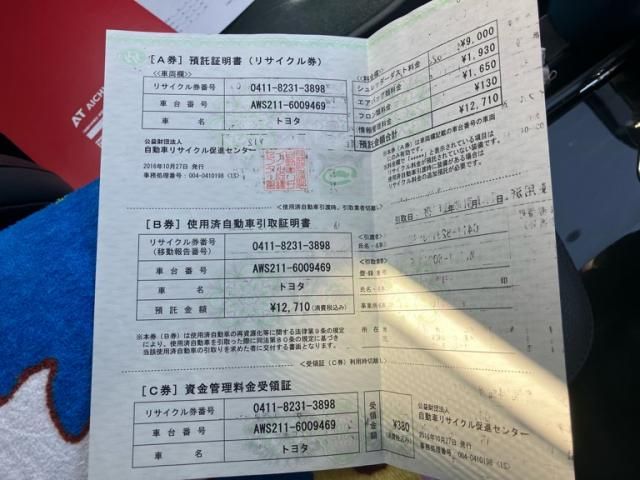 AT AICHI
[A券] 預託証明書 (リサイクル券)
<<車両欄>>
リサイクル券番号 0411-8231-3898
車台番号 AWS211-6009469
車名 トヨタ
公益財団法人
自動車リサイクル促進センター
2016年10月27日 発行
事務処理番号:004-0410198 (1S)
<<料金欄>>
シュレッダーダスト料金 ¥9,000
エアバッグ類料金 ¥1,930
フロン類料金 ¥1,650
情報管理料金 ¥130
預託金額合計 ¥12,710
<使用済自動車引渡時、引取業者切離し>
[B券] 使用済自動車引取証明書
リサイクル券番号
(移動報告番号) 0411-8231-3898
車台番号 AWS211-6009469
車名 トヨタ
預託金額 ¥12,710 (消費税込み)
※本券(B券)は使用済自動車の再資源化等に関する法律第9条の規定
により、使用済自動車を引取った際に同法第80条の規定に基づき
当該使用済自動車の引取りを求めた者に交付する書面となります。
引取日:
<引渡者>
<引取業者>
印
<受領証(C券)利用時切離し>
[C券] 資金管理料金受領証
リサイクル券番号 0411-8231-3898
車台番号 AWS211-6009469
車名 トヨタ
受領金額 ¥380
(消費税込み)
公益財団法人
自動車リサイクル促進センター
2016年10月27日 発行
事務処理番号:004-0410198 (1S)